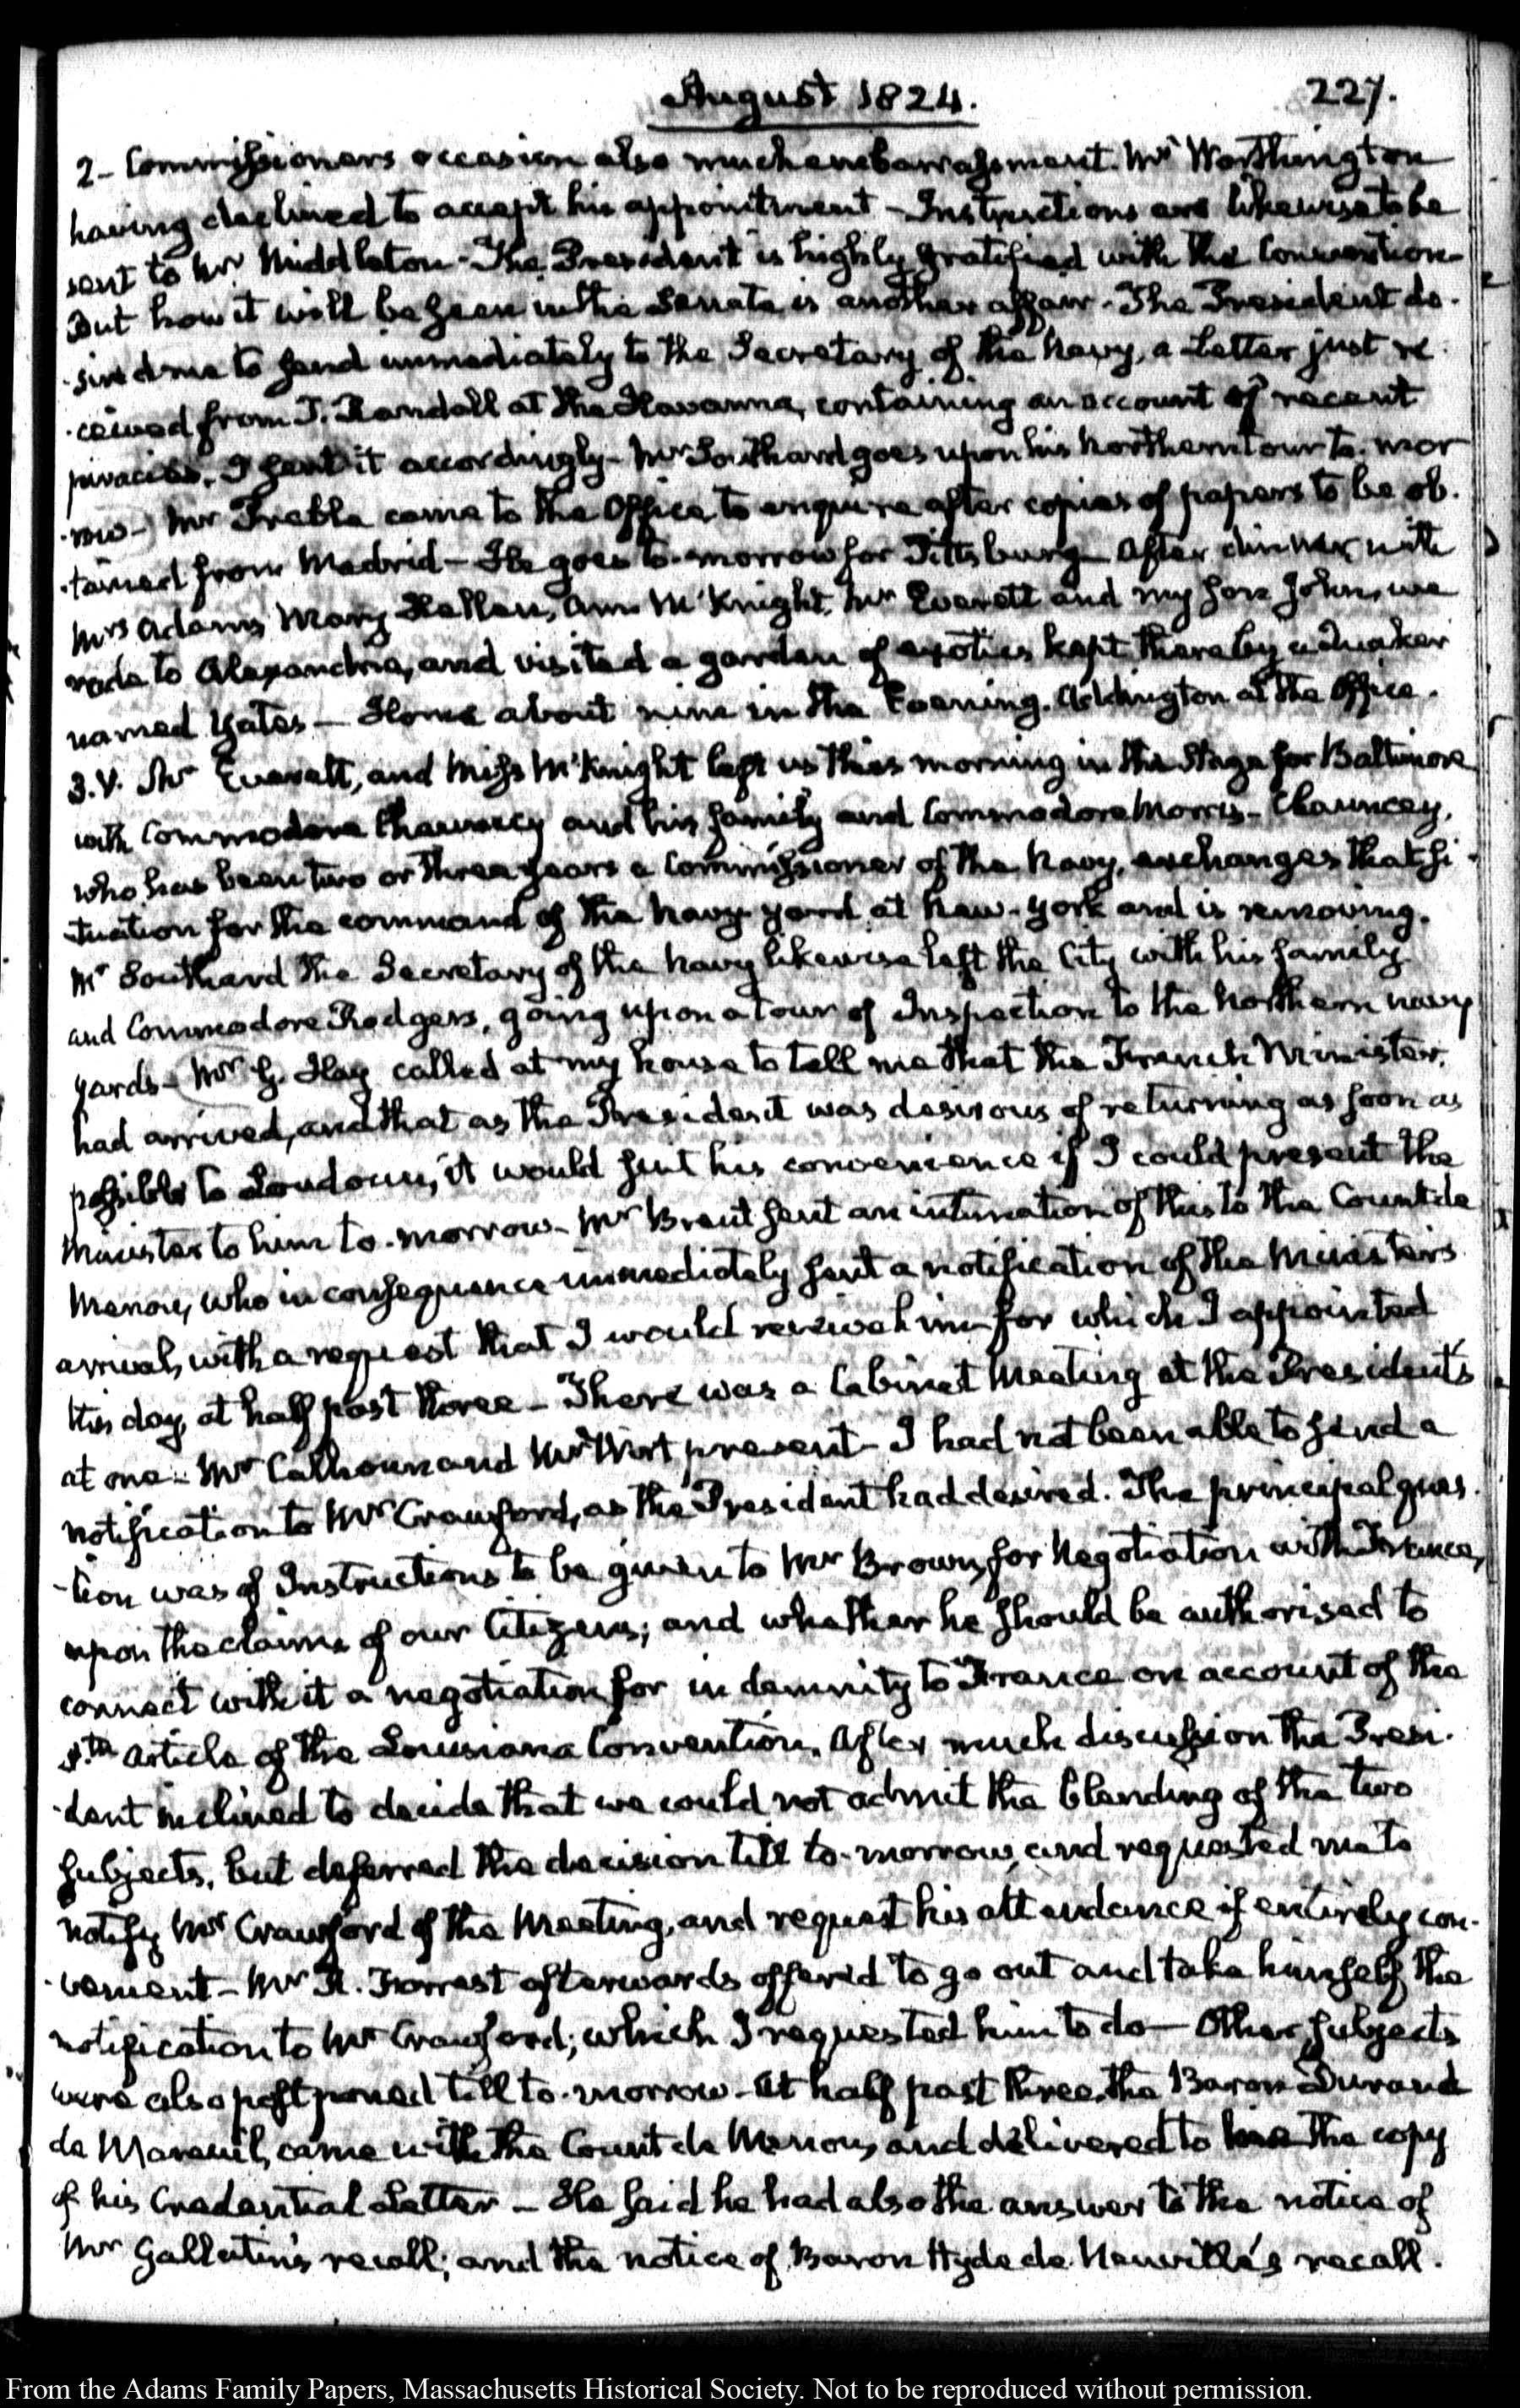 August 1824.
227.
2- Commissioners occasion also much embarrassment. Mr Worthington
having declined to accept his appointment - Instructions are likewise to be
sent to Mr Middleton - The President is highly gratified with the Convention-
But how it will be seen in the Senate is another affair - The President de-
-sired me to send immediately to the Secretary of the Navy, a Letter just re-
-ceived from T. Randall at the Havanna, containing an account of recent
piracies. I sent it accordingly - Mr Southard goes upon his Northern tour to-mor
-row - Mr Preble came to the Office, to enquire after copies of papers to be ob-
-tained from Madrid - He goes to-morrow for Pittsburg - After dinner, with
Mrs Adams, Mary Hellen, Ann McKnight, Mr Everett and my Son John, we
rode to Alexandria, and visited a garden of exotics kept there by a Quaker
named Yates - Home about nine in the Evening. Addington at the Office.
3. V. Mr Everett, and Miss McKnight left us this morning in the Stage for Baltimore
with Commodore Chauncey and his family and Commodore Morris - Chauncey,
who has been two or three years a Commissioner of the Navy, exchanges that si-
tuation for the command of the Navy-yard at New-York and is removing.
Mr Southard the Secretary of the Navy likewise left the City with his family
and Commodore Rodgers, going upon a tour of Inspection to the Northern navy
yards - Mr G. Hay called at my house to tell me that the French Minister,
had arrived, and that as the President was desirous of returning as soon as
possible to Loudoun, it would suit his convenience if I could present the
Minister to him to-morrow - Mr Brent sent an intimation of this to the Count de
Menou, who in consequence immediately sent a notification of the Minister's
arrival, with a request that I would receive him for which I appointed
this day, at half past three - There was a Cabinet Meeting at the President's
at one - Mr Calhoun and Mr Wirt present - I had not been able to send a
notification to Mr Crawford, as the President had desired. The principal ques-
-tion was of Instructions to be given to Mr Brown, for Negotiation with France,
upon the claims of our Citizens; and whether he should be authorised to
connect with it a negotiation for indemnity to France on account of the
8th Article of the Louisiana Convention. After much discussion the Presi-
-dent inclined to decide that we could not admit the blending of the two
subjects, but deferred the decision till to-morrow, and requested me to
notify Mr Crawford of the Meeting, and request his attendance if entirely con-
-venient - Mr R. Forrest afterwards offered to go out and take himself the
notification to Mr Crawford; which I requested him to do - Other subjects
were also postponed till to-morrow - At half past three, the Baron Durand
de Mareuil, came with the Count de Menou, and delivered to me the copy
of his Credential Letter - He said he had also the answer to the notice of
Mr Gallatin's recall; and the notice of Baron Hyde de Neuville's recall.
From the Adams Family Papers, Massachusetts Historical Society. Not to be reproduced without permission.